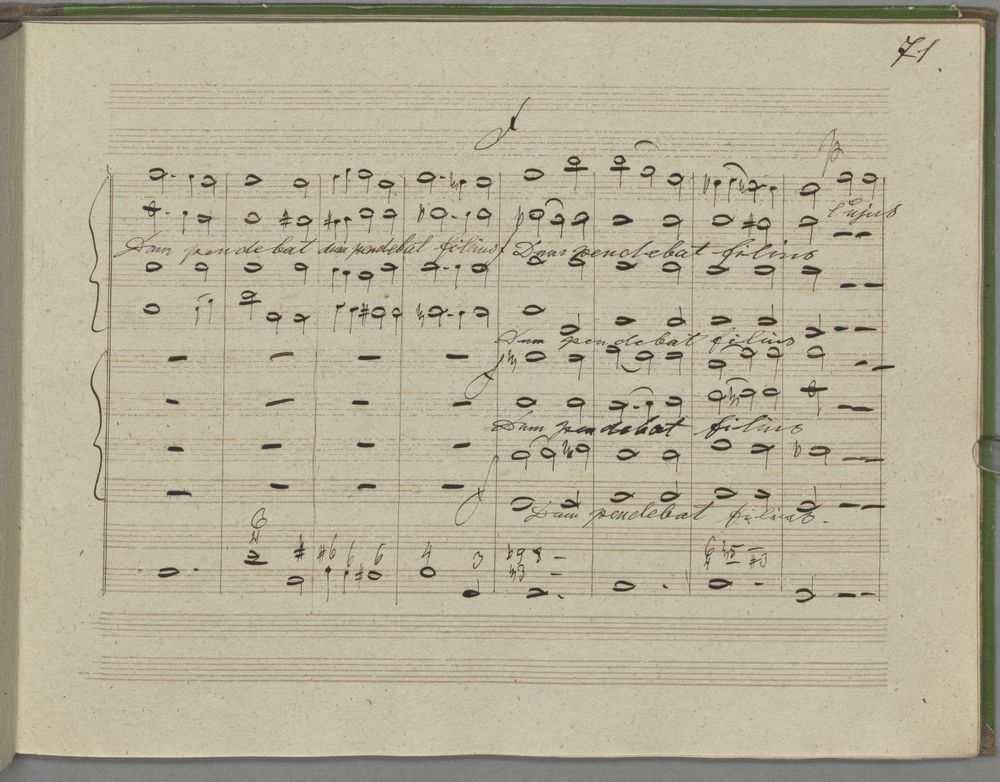 71.
f
p
Cujus
Dum pendebat dum pendebat filius Dum pendebat filius
Dum pendebat filius
Dum pendebat filius
Dum pendebat filius.
6
4
2 # #6 6 6 4 3 ♭9 8 – 6 ♮5 –
♮3 – 4 – #3